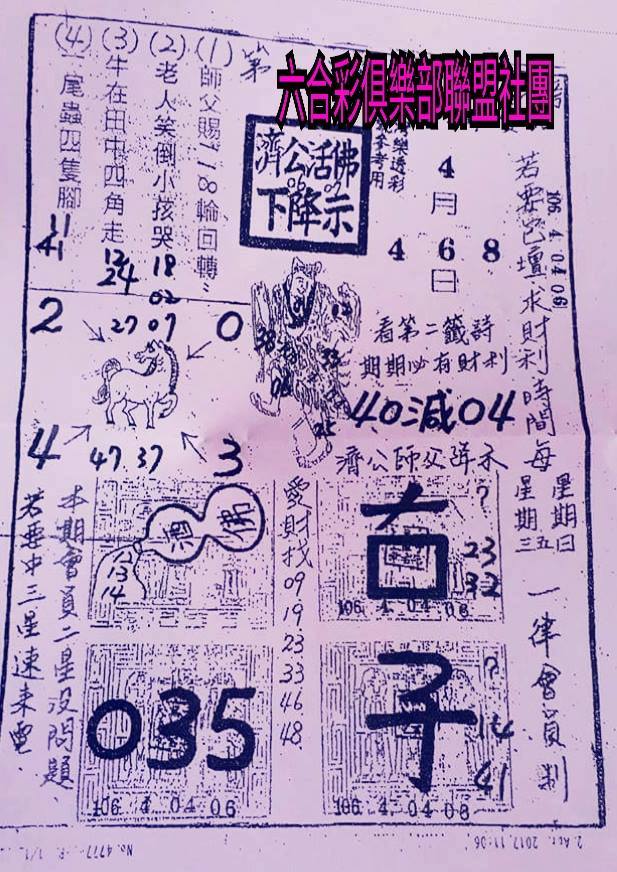 六合彩俱樂部聯盟社團
第
(1)師父賜118輪回轉
(2)老人笑倒小孩哭
18
02
(3)牛在田中四角走
12
24
(4)一尾蟲四隻腳
11
41
濟公活佛
06 09
下降示
樂透彩
參考用
4
月
4 6 8
日
106. 4. 04 06
若要包壇求財利時間每
星期日
星期三五
一律會員制
看第二籤詩
期期必有財利
40減04
濟公師父降示
2
27 07
0
4
47 37
3
38
33
25
濟 佛
13
14
愛財找
09
19
23
33
46
48
?
23
32
106 4. 04 06
本期會員二星沒問題、
若要中三星速來電.
035
106 4. 04 06
子
?
14
41
106 4. 04 06
2.Apr. 2017 11:06
No.4777 P. 1/1